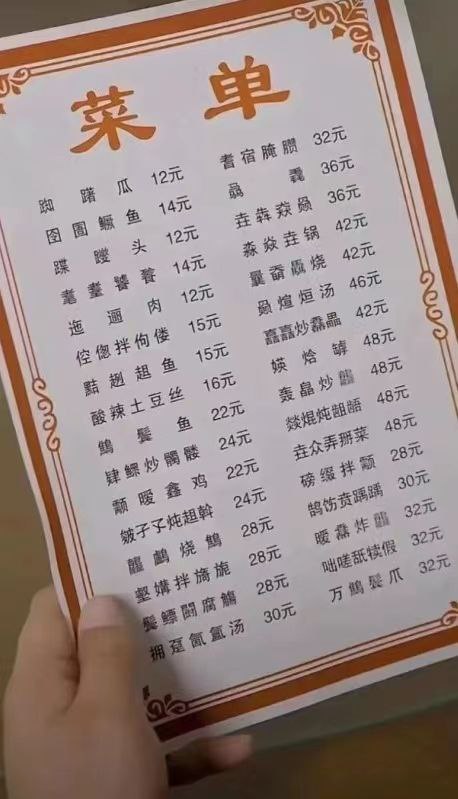 菜单
瓜 12元
囹圄鳜鱼 14元
头 12元
耄耋饕餮 14元
迤逦肉 12元
倥偬拌佝偻 15元
黠趔趄鱼 15元
酸辣土豆丝 16元
鬓鱼 22元
肄鳏炒髑髅 24元
颥暧鑫鸡 22元
皴孑孓炖趄斡 24元
烧 28元
壑媾拌旖旎 28元
鬓鳔腐觞 28元
拥趸氤氲汤 30元
耆宿腌臜 32元
骉毳 36元
垚犇猋骉 36元
淼焱垚锅 42元
烧 42元
骉煊烜汤 46元
嚞嚞炒 42元
媖焓罅 48元
轰皛炒 48元
燚焜炖龃龉 48元
垚众弄掰菜 48元
磅缀拌颥 28元
鹄饬贲踽踽 30元
暧炸 32元
咄嗟舐犊假 32元
万鬓爪 32元